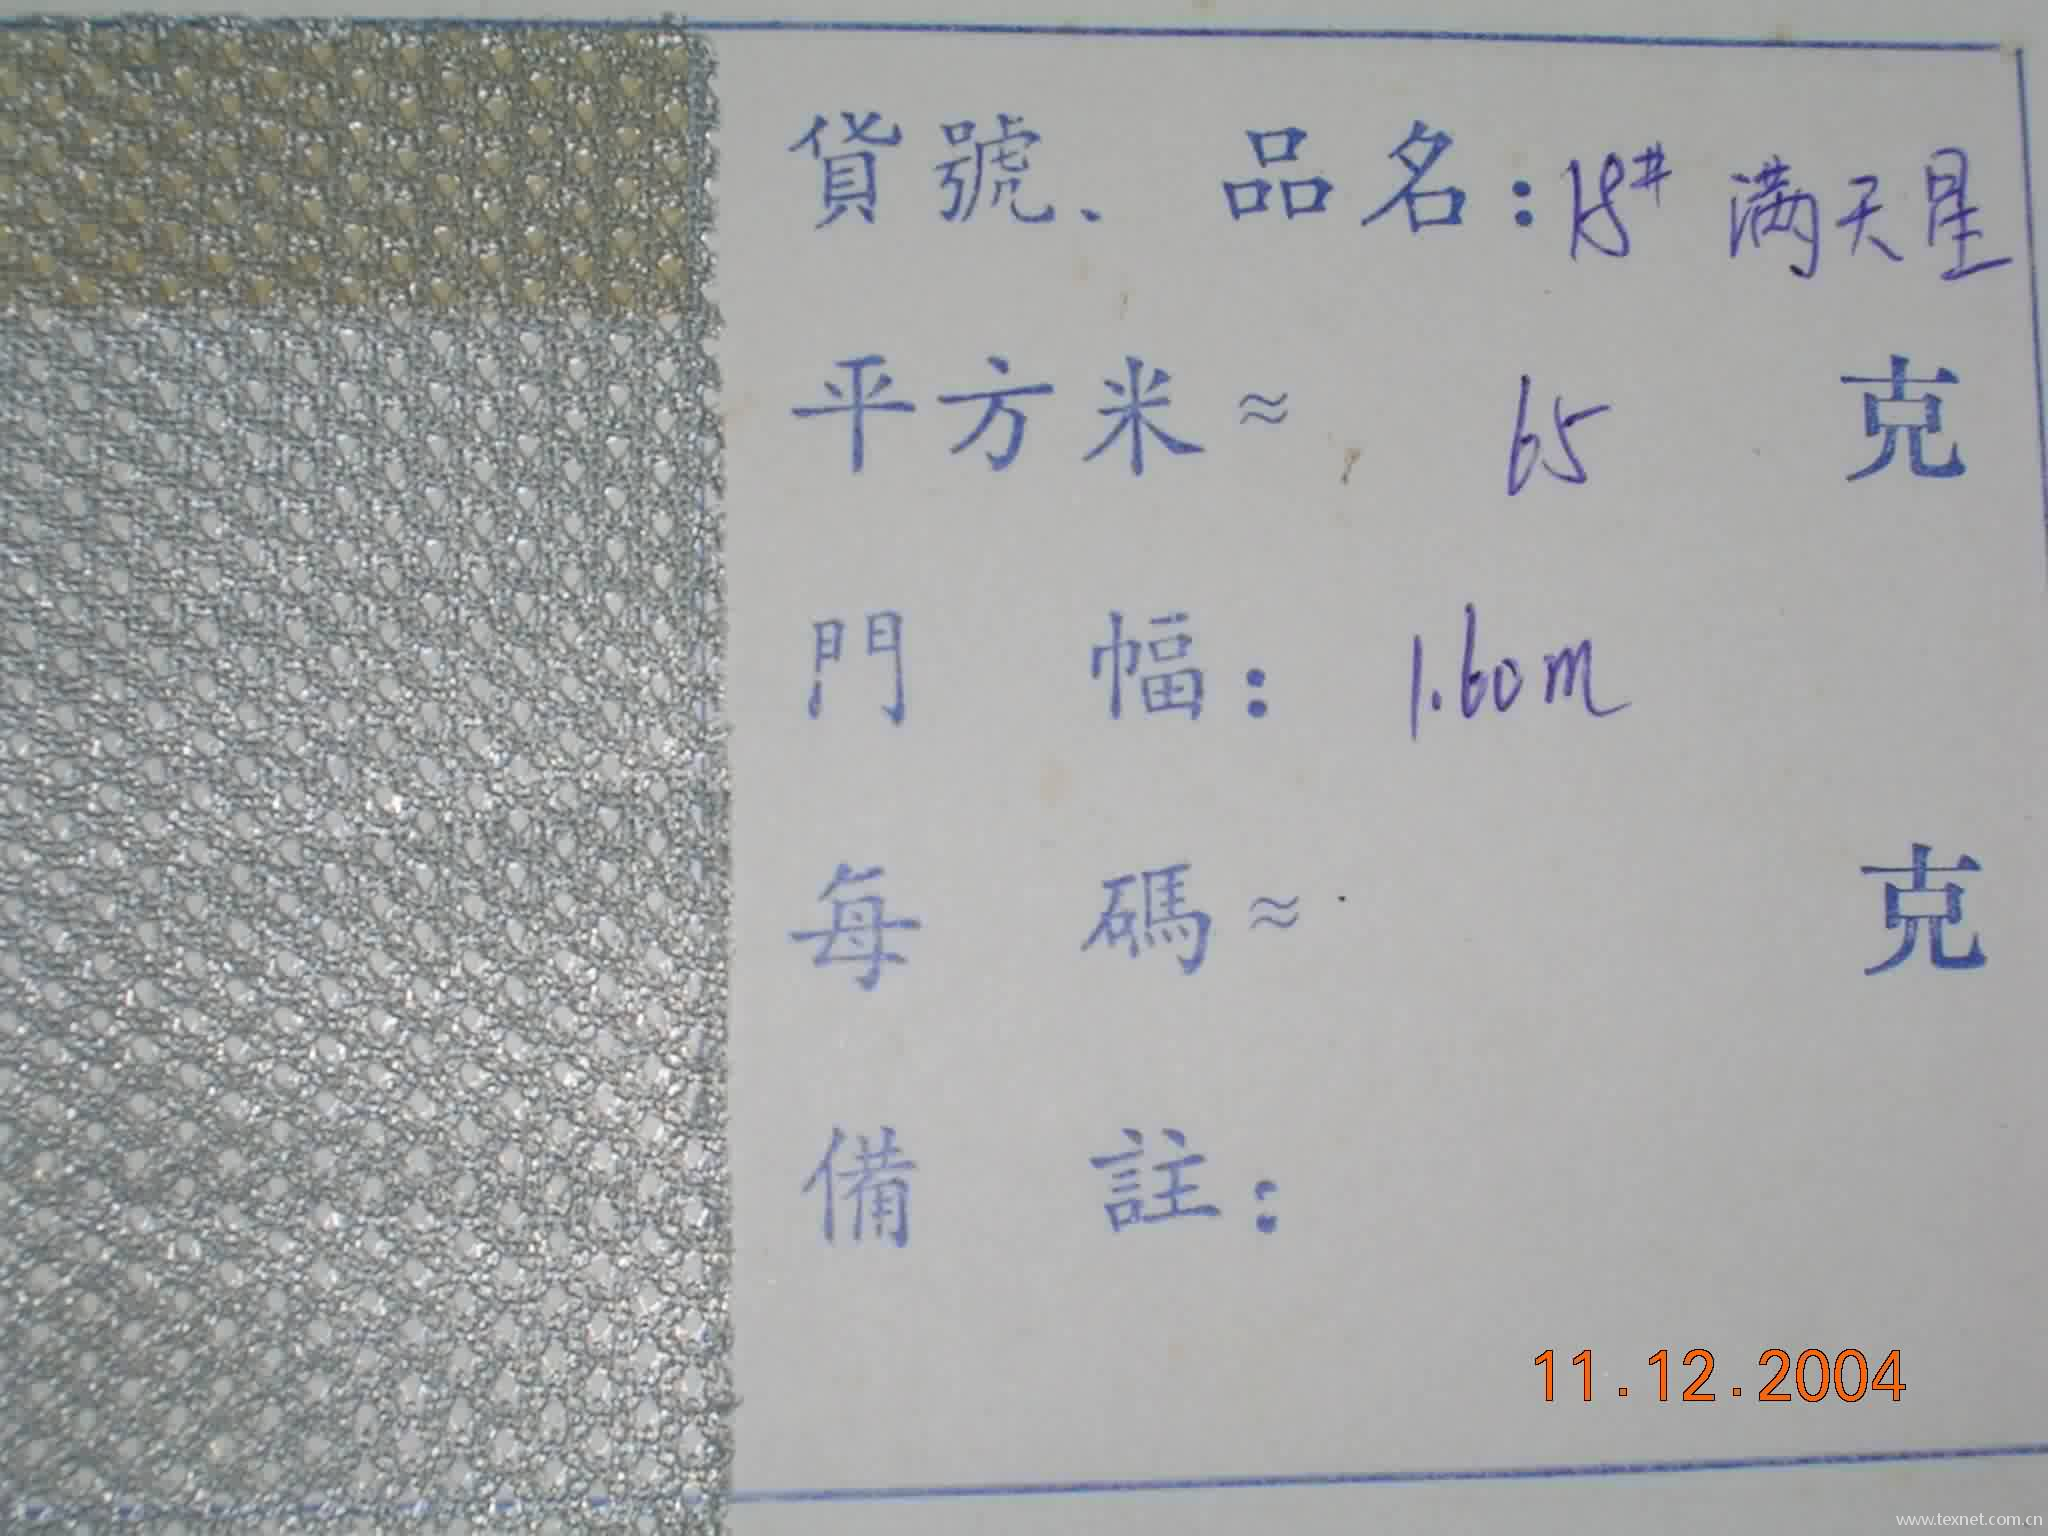 貨號、品名:18# 满天星
平方米≈ 65 克
門幅:1.60m
每碼≈ 克
備註:
11.12.2004
www.texnet.com.cn